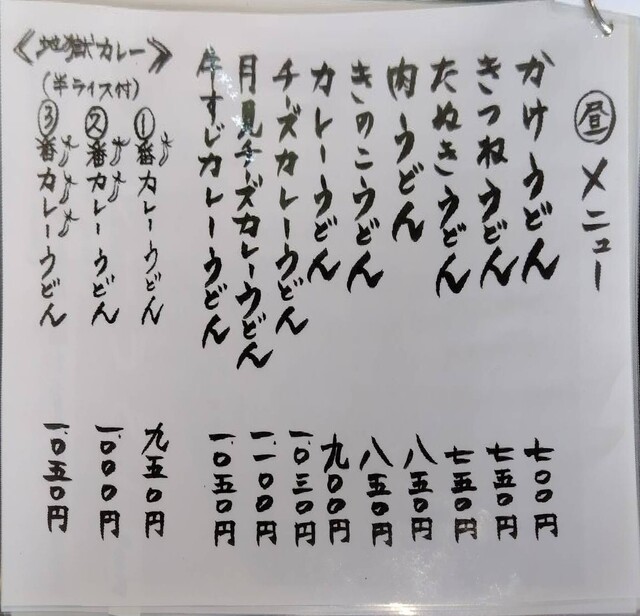 昼メニュー
かけうどん 七〇〇円
きつねうどん 七五〇円
たぬきうどん 七五〇円
肉うどん 八五〇円
きのこうどん 八五〇円
カレーうどん 九〇〇円
チーズカレーうどん 一、〇三〇円
月見チーズカレーうどん 一、一〇〇円
牛すじカレーうどん 一、〇五〇円
《地獄カレー》
(半ライス付)
①番カレーうどん 九五〇円
②番カレーうどん 一、〇〇〇円
③番カレーうどん 一、〇五〇円